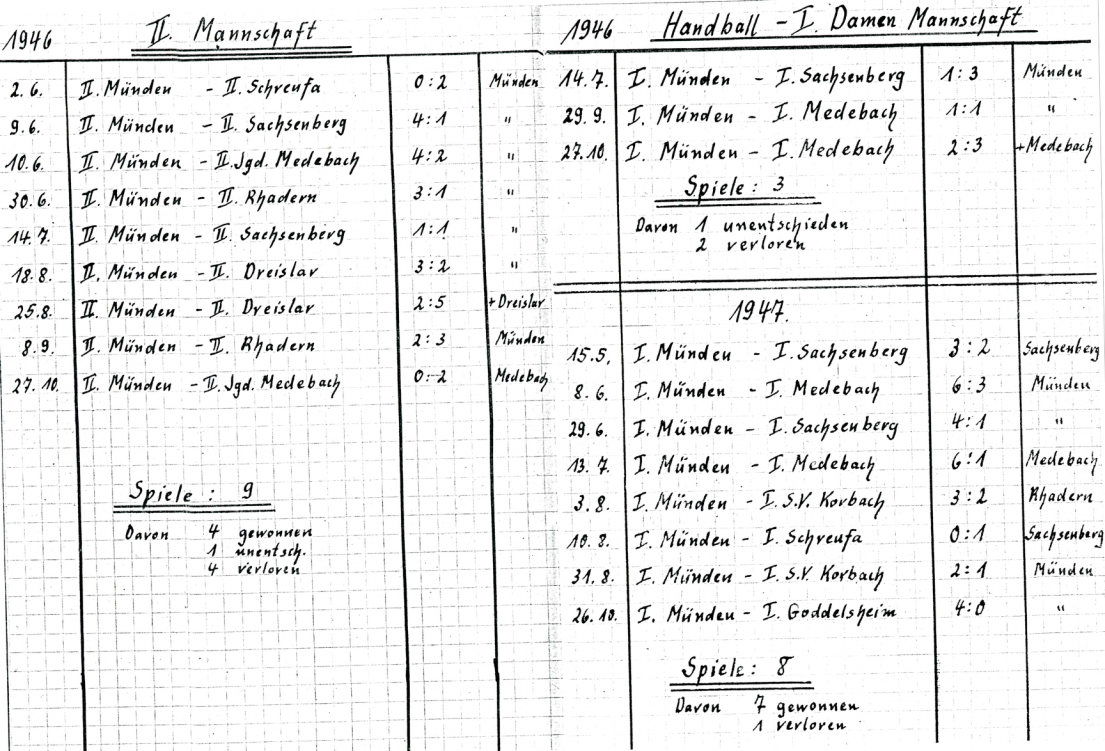 1946 II. Mannschaft
2.6. II. Münden - II. Schreufa 0:2 Münden
9.6. II. Münden - II. Sachsenberg 4:1 "
10.6. II. Münden - II. Jgd. Medebach 4:2 "
30.6. II. Münden - II. Rhadern 3:1 "
14.7. II. Münden - II. Sachsenberg 1:1 "
18.8. II. Münden - II. Dreislar 3:2 "
25.8. II. Münden - II. Dreislar 2:5 +Dreislar
8.9. II. Münden - II. Rhadern 2:3 Münden
27.10. II. Münden - II. Jgd. Medebach 0:2 Medebach
Spiele: 9
Davon 4 gewonnen
1 unentsch.
4 verloren
1946 Handball - I. Damen Mannschaft
14.7. I. Münden - I. Sachsenberg 1:3 Münden
29.9. I. Münden - I. Medebach 1:1 "
27.10. I. Münden - I. Medebach 2:3 +Medebach
Spiele: 3
Davon 1 unentschieden
2 verloren
1947.
15.5. I. Münden - I. Sachsenberg 3:2 Sachsenberg
8.6. I. Münden - I. Medebach 6:3 Münden
29.6. I. Münden - I. Sachsenberg 4:1 "
13.7. I. Münden - I. Medebach 6:1 Medebach
3.8. I. Münden - I. S.V. Korbach 3:2 Rhadern
10.8. I. Münden - I. Schreufa 0:1 Sachsenberg
31.8. I. Münden - I. S.V. Korbach 2:1 Münden
26.10. I. Münden - I. Goddelsheim 4:0 "
Spiele: 8
Davon 7 gewonnen
1 verloren